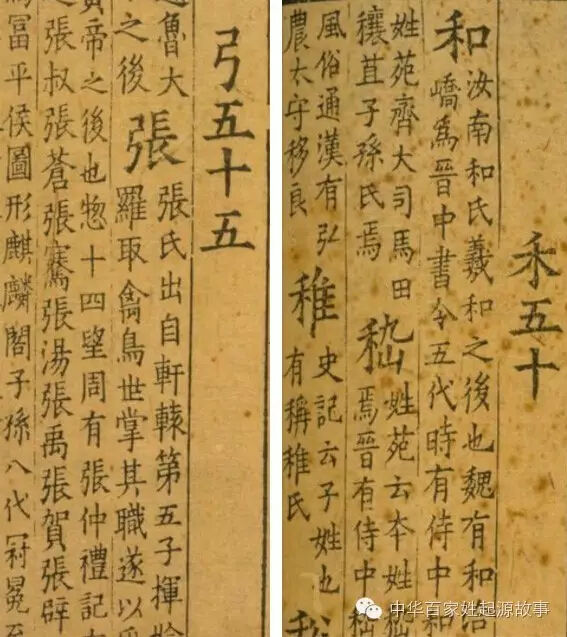 禾五十
和
汝南和氏羲和之後也魏有和洽
嶠爲晉中書令五代時有侍中和
姓苑齊大司馬田
穰苴子孫氏焉
嵇
姓苑云本姓
焉晉有侍中嵇
風俗通漢有弘
農太守移良
稚
史記云子姓也
有稱稚氏
弓五十五
魯大
之後
張
張氏出自軒轅第五子揮始
羅取禽鳥世掌其職遂以
帝之後也惣十四望周有張仲禮記
之張叔張蒼張騫張湯張禹張賀張辟
富平侯圖形麒麟閣子孫八代冠冕至
中华百家姓起源故事